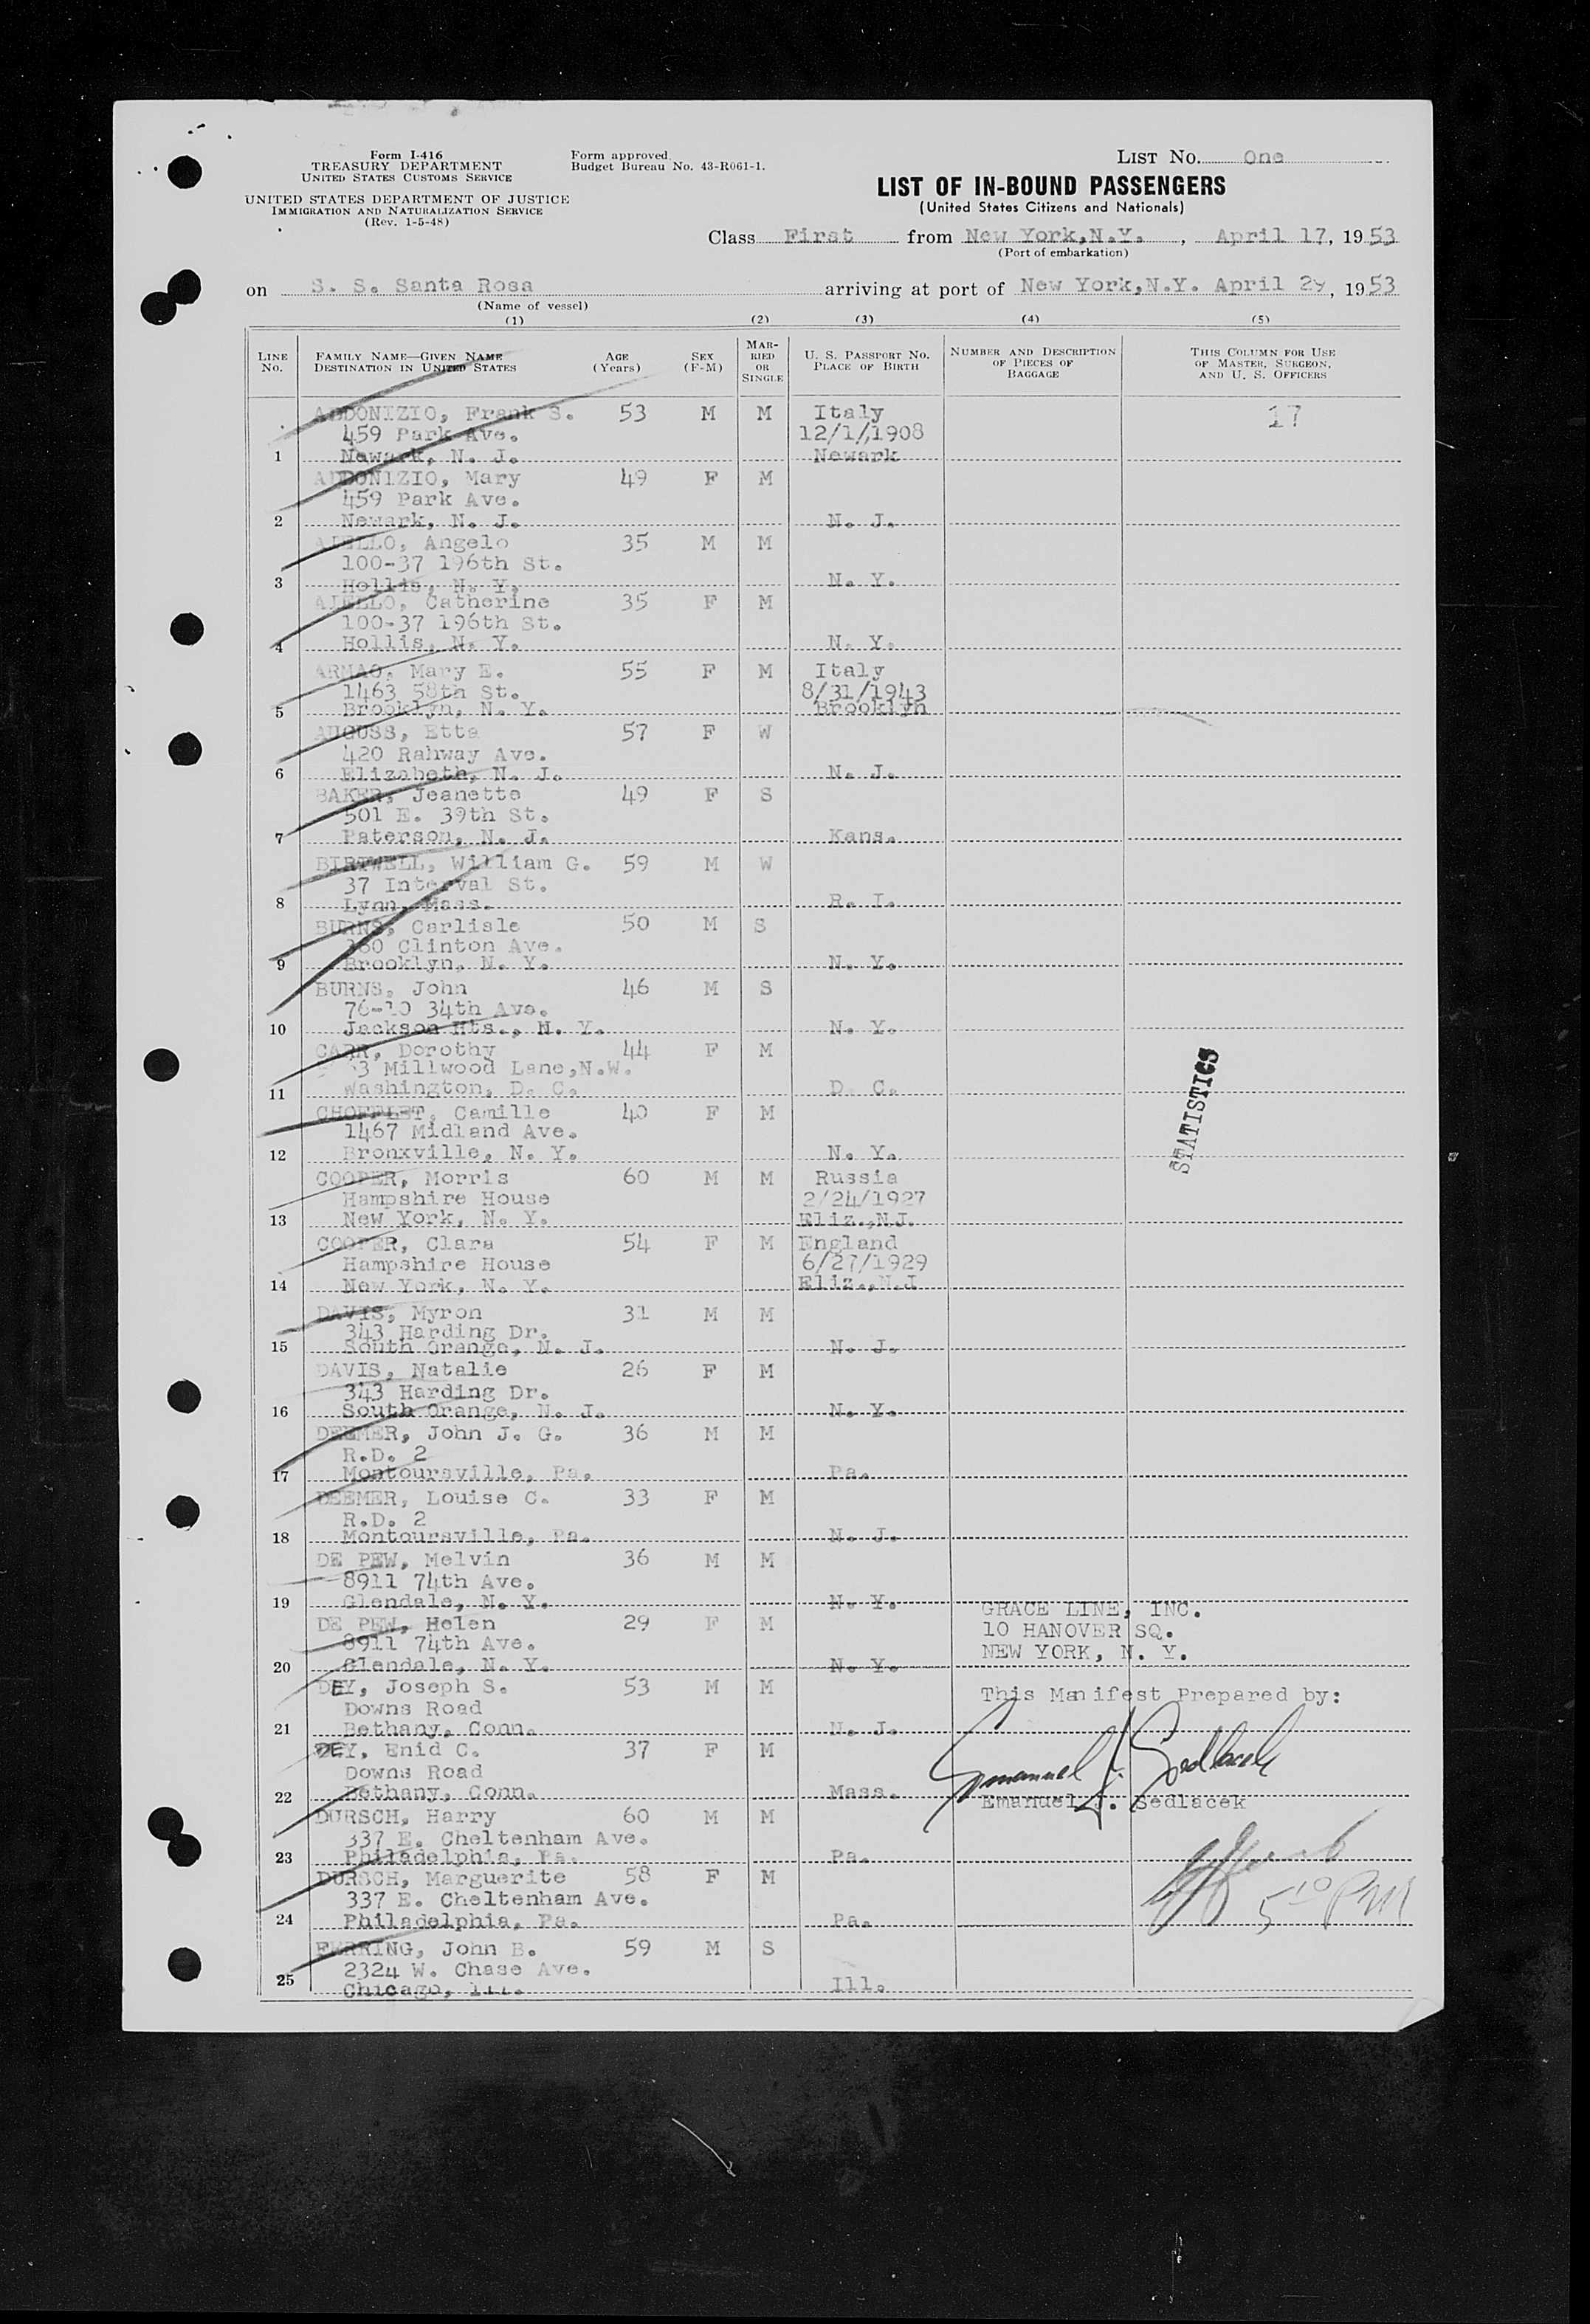 Form I-416
TREASURY DEPARTMENT
UNITED STATES CUSTOMS SERVICE
UNITED STATES DEPARTMENT OF JUSTICE
IMMIGRATION AND NATURALIZATION SERVICE
(Rev. 1-5-48)
Form approved.
Budget Bureau No. 43-R061-1.
LIST NO. One
LIST OF IN-BOUND PASSENGERS
(United States Citizens and Nationals)
Class First from New York, N.Y., April 17, 1953
(Port of embarkation)
on S. S. Santa Rosa arriving at port of New York, N.Y. April 29, 1953
(Name of vessel)
(1) (2) (3) (4) (5)
LINE NO. FAMILY NAME—GIVEN NAME DESTINATION IN UNITED STATES AGE (Years) SEX (F-M) MARRIED OR SINGLE U. S. PASSPORT NO. PLACE OF BIRTH NUMBER AND DESCRIPTION OF PIECES OF BAGGAGE THIS COLUMN FOR USE OF MASTER, SURGEON, AND U. S. OFFICERS
ADDONIZIO, Frank S. 53 M M Italy 17
459 Park Ave. 12/1/1908
1 Newark, N. J. Newark
ADDONIZIO, Mary 49 F M
459 Park Ave.
2 Newark, N. J. N. J.
AIELLO, Angelo 35 M M
100-37 196th St.
3 Hollis, N. Y. N. Y.
AIELLO, Catherine 35 F M
100-37 196th St.
4 Hollis, N. Y. N. Y.
ARMAO, Mary E. 55 F M Italy
1463 58th St. 8/31/1943
5 Brooklyn, N. Y. Brooklyn
AUGUSS, Etta 57 F W
420 Rahway Ave.
6 Elizabeth, N. J. N. J.
BAKER, Jeanette 49 F S
501 E. 39th St.
7 Paterson, N. J. Kans.
BIRTWELL, William G. 59 M W
37 Interval St.
8 Lynn, Mass. R. I.
BURNS, Carlisle 50 M S
Clinton Ave.
9 Brooklyn, N. Y. N. Y.
BURNS, John 46 M S
76-10 34th Ave.
10 Jackson Hts., N. Y. N. Y.
CARR, Dorothy 44 F M
Millwood Lane, N.W.
11 Washington, D. C. D. C.
CHOFFLET, Camille 40 F M
1467 Midland Ave.
12 Bronxville, N. Y. N. Y.
COOPER, Morris 60 M M Russia
Hampshire House 2/24/1927
13 New York, N. Y. Eliz., N.J.
COOPER, Clara 54 F M England
Hampshire House 6/27/1929
14 New York, N. Y. Eliz., N.J
STATISTICS
DAVIS, Myron 31 M M
343 Harding Dr.
15 South Orange, N. J. N. J.
DAVIS, Natalie 26 F M
343 Harding Dr.
16 South Orange, N. J. N. Y.
DEEMER, John J. G. 36 M M
R.D. 2
17 Montoursville, Pa. Pa.
DEEMER, Louise C. 33 F M
R.D. 2
18 Montoursville, Pa. N. J.
DE PEW, Melvin 36 M M
8911 74th Ave.
19 Glendale, N. Y. N. Y.
DE PEW, Helen 29 F M
8911 74th Ave.
20 Glendale, N. Y. N. Y.
GRACE LINE, INC.
10 HANOVER SQ.
NEW YORK, N. Y.
DEY, Joseph S. 53 M M
Downs Road
21 Bethany, Conn. N. J.
DEY, Enid C. 37 F M
Downs Road
22 Bethany, Conn. Mass.
This Manifest Prepared by:
Emanuel J. Sedlacek
Emanuel J. Sedlacek
DURSCH, Harry 60 M M
337 E. Cheltenham Ave.
23 Philadelphia, Pa. Pa.
DURSCH, Marguerite 58 F M
337 E. Cheltenham Ave.
24 Philadelphia, Pa. Pa.
5 10 PM
FERRING, John B. 59 M S
2324 W. Chase Ave.
25 Chicago, Ill. Ill.